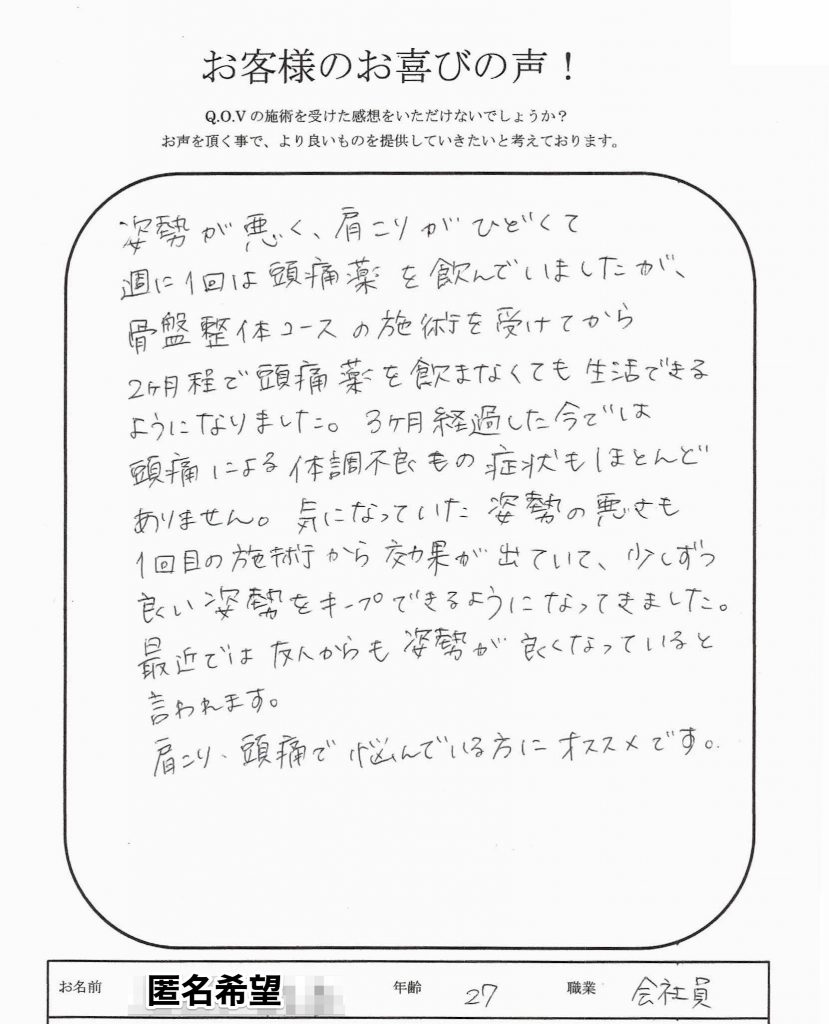 お客様のお喜びの声！
Q.O.Vの施術を受けた感想をいただけないでしょうか？
お声を頂く事で、より良いものを提供していきたいと考えております。
姿勢が悪く、肩こりがひどくて
週に1回は頭痛薬を飲んでいましたが、
骨盤整体コースの施術を受けてから
2ヶ月程で頭痛薬を飲まなくても生活できる
ようになりました。3ヶ月経過した今では
頭痛による体調不良もの症状もほとんど
ありません。気になっていた姿勢の悪さも
1回目の施術から効果が出ていて、少しずつ
良い姿勢をキープできるようになってきました。
最近では友人からも姿勢が良くなっていると
言われます。
肩こり、頭痛で悩んでいる方にオススメです。
お名前 匿名希望 年齢 27 職業 会社員